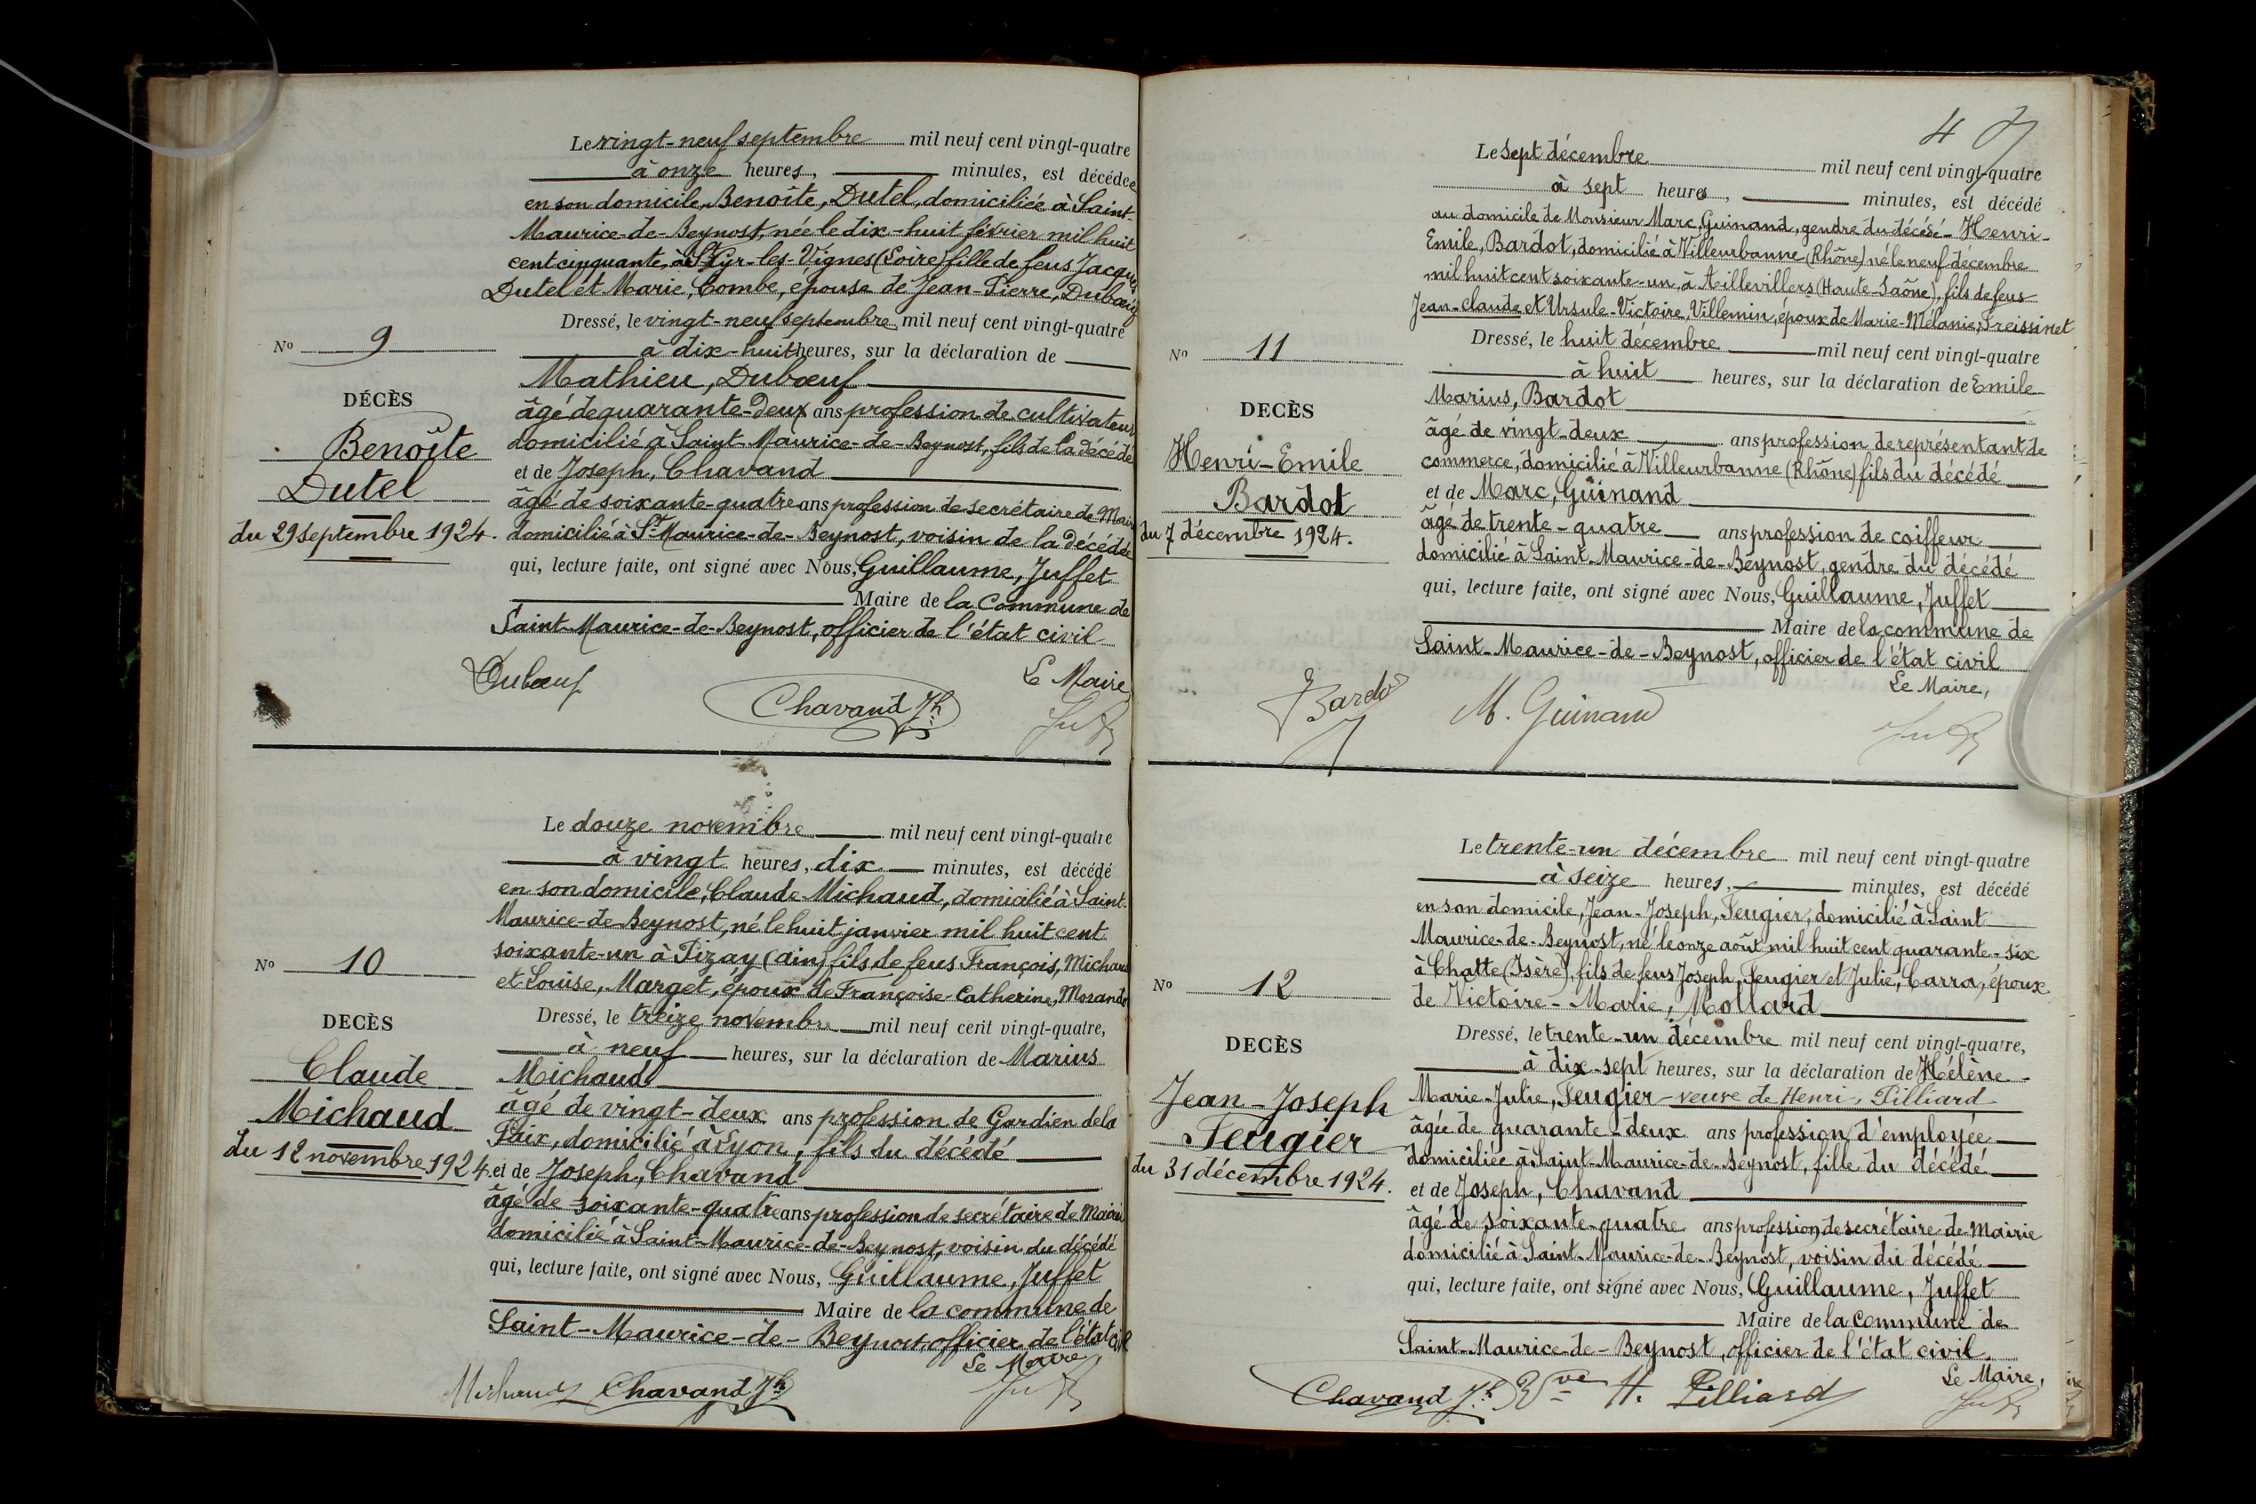 Le vingt-neuf septembre mil neuf cent vingt-quatre
à onze heures, minutes, est décédée
en son domicile, Benoîte, Dutel, domiciliée à Saint-
Maurice-de-Beynost, née le dix-huit février mil huit
cent cinquante, à St Cyr-les-Vignes (Loire) fille de feus Jacques
Dutel et Marie, Combe, épouse de Jean-Pierre, Dubœuf
Dressé, le vingt-neuf septembre, mil neuf cent vingt-quatre
à dix-huit heures, sur la déclaration de
Mathieu, Dubœuf
âgé de quarante-deux ans profession de cultivateur
domicilié à Saint-Maurice-de-Beynost, fils de la décédée
et de Joseph, Chavand
âgé de soixante-quatre ans profession de secrétaire de Mairie
domicilié à St Maurice-de-Beynost, voisin de la décédée
qui, lecture faite, ont signé avec Nous, Guillaume, Juffet
Maire de la Commune de
Saint-Maurice-de-Beynost, officier de l'état civil
Le Maire
Dubœuf
Chavand Jh
Juffet
No 9
DÉCÈS
Benoîte
Dutel
du 29 septembre 1924.
Le douze novembre mil neuf cent vingt-quatre
à vingt heures, dix minutes, est décédé
en son domicile, Claude Michaud, domicilié à Saint-
Maurice-de-Beynost, né le huit janvier mil huit cent
soixante-un à Pizay (ain) fils de feus François, Michaud
et Louise, Marget, époux de Françoise-Catherine, Morando
Dressé, le treize novembre mil neuf cent vingt-quatre,
à neuf heures, sur la déclaration de Marius
Michaud
âgé de vingt-deux ans profession de Gardien de la
Paix, domicilié à Lyon, fils du décédé
et de Joseph, Chavand
âgé de soixante-quatre ans profession de secrétaire de Mairie
domicilié à Saint-Maurice-de-Beynost, voisin du décédé
qui, lecture faite, ont signé avec Nous, Guillaume, Juffet
Maire de la commune de
Saint-Maurice-de-Beynost, officier de l'état civil
Le Maire,
Michaud Chavand Jh
Juffet
No 10
DECÈS
Claude
Michaud
du 12 novembre 1924.
4
Le sept décembre mil neuf cent vingt-quatre
à sept heures, minutes, est décédé
au domicile de Monsieur Marc, Guinand, gendre du décédé- Henri-
Emile, Bardot, domicilié à Villeurbanne (Rhône) né le neuf décembre
mil huit cent soixante-un, à Aillevillers (Haute-Saône), fils de feus
Jean-Claude et Ursule-Victoire, Villemin, époux de Marie-Mélanie, Freissinet
Dressé, le huit décembre mil neuf cent vingt-quatre
à huit heures, sur la déclaration de Emile
Marius, Bardot
âgé de vingt-deux ans profession de représentant de
commerce, domicilié à Villeurbanne (Rhône) fils du décédé
et de Marc, Guinand
âgé de trente-quatre ans profession de coiffeur
domicilié à Saint-Maurice-de-Beynost, gendre du décédé
qui, lecture faite, ont signé avec Nous, Guillaume, Juffet
Maire de la commune de
Saint-Maurice-de-Beynost, officier de l'état civil
Le Maire,
Bardot
M. Guinand
Juffet
No 11
DECÈS
Henri-Emile
Bardot
du 7 décembre 1924.
Le trente-un décembre mil neuf cent vingt-quatre
à seize heures, minutes, est décédé
en son domicile, Jean-Joseph, Feugier, domicilié à Saint
Maurice-de-Beynost, né le onze août mil huit cent quarante-six
à Chatte (Isère), fils de feus Joseph, Feugier et Julie, Carra, époux
de Victoire-Marie, Mollard
Dressé, le trente-un décembre mil neuf cent vingt-quatre,
à dix-sept heures, sur la déclaration de Hélène-
Marie-Julie, Feugier-veuve de Henri, Pilliard
âgée de quarante-deux ans profession d'employée
domiciliée à Saint-Maurice-de-Beynost, fille du décédé
et de Joseph, Chavand
âgé de soixante-quatre ans profession de secrétaire de Mairie
domicilié à Saint-Maurice-de-Beynost, voisin du décédé
qui, lecture faite, ont signé avec Nous, Guillaume, Juffet
Maire de la commune de
Saint-Maurice-de-Beynost, officier de l'état civil.
Le Maire,
Chavand Jh Vve H. Pilliard
Juffet
No 12
DECÈS
Jean-Joseph
Feugier
du 31 décembre 1924.